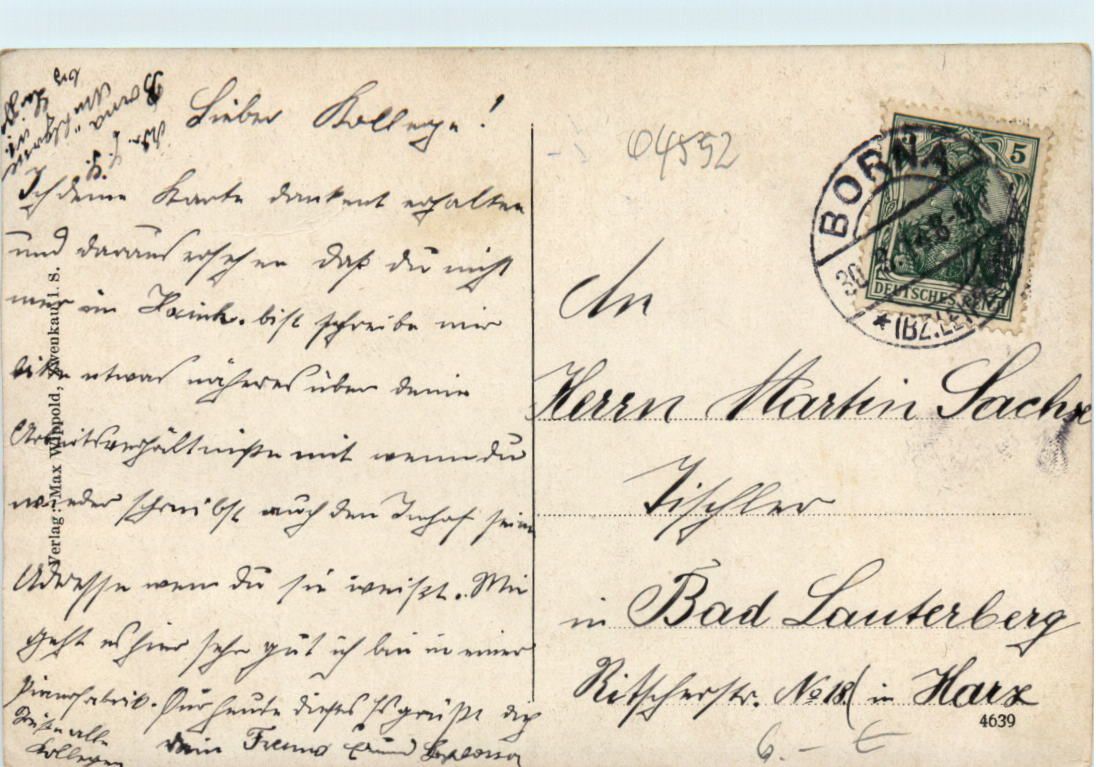 Lieber Kollege!
Ich deine Karte dankent erhalten
und daraus ersehen daß du nicht
mer in bist schreibe mir
bitte etwas näheres über deine
Arbeitsverhältniße mit wenn du
wieder schreibst auch den seine
Adresse wenn du sie weißt. Mir
geht es hier sehr gut ich bin in einer
Pianofabrik. Für heute dieses Es grüßt dich
dein Freund
Grüße alle
Kollegen
Borna
Verlag: Max Wippold, Zwenkau i. S.
04552
5
DEUTSCHES
BORNA
(BZ.LEIPZIG)
An
Herrn Martin Sachse
Tischler
in Bad Lauterberg
Ritscherstr. No 18 in Harz
4639
6.- €